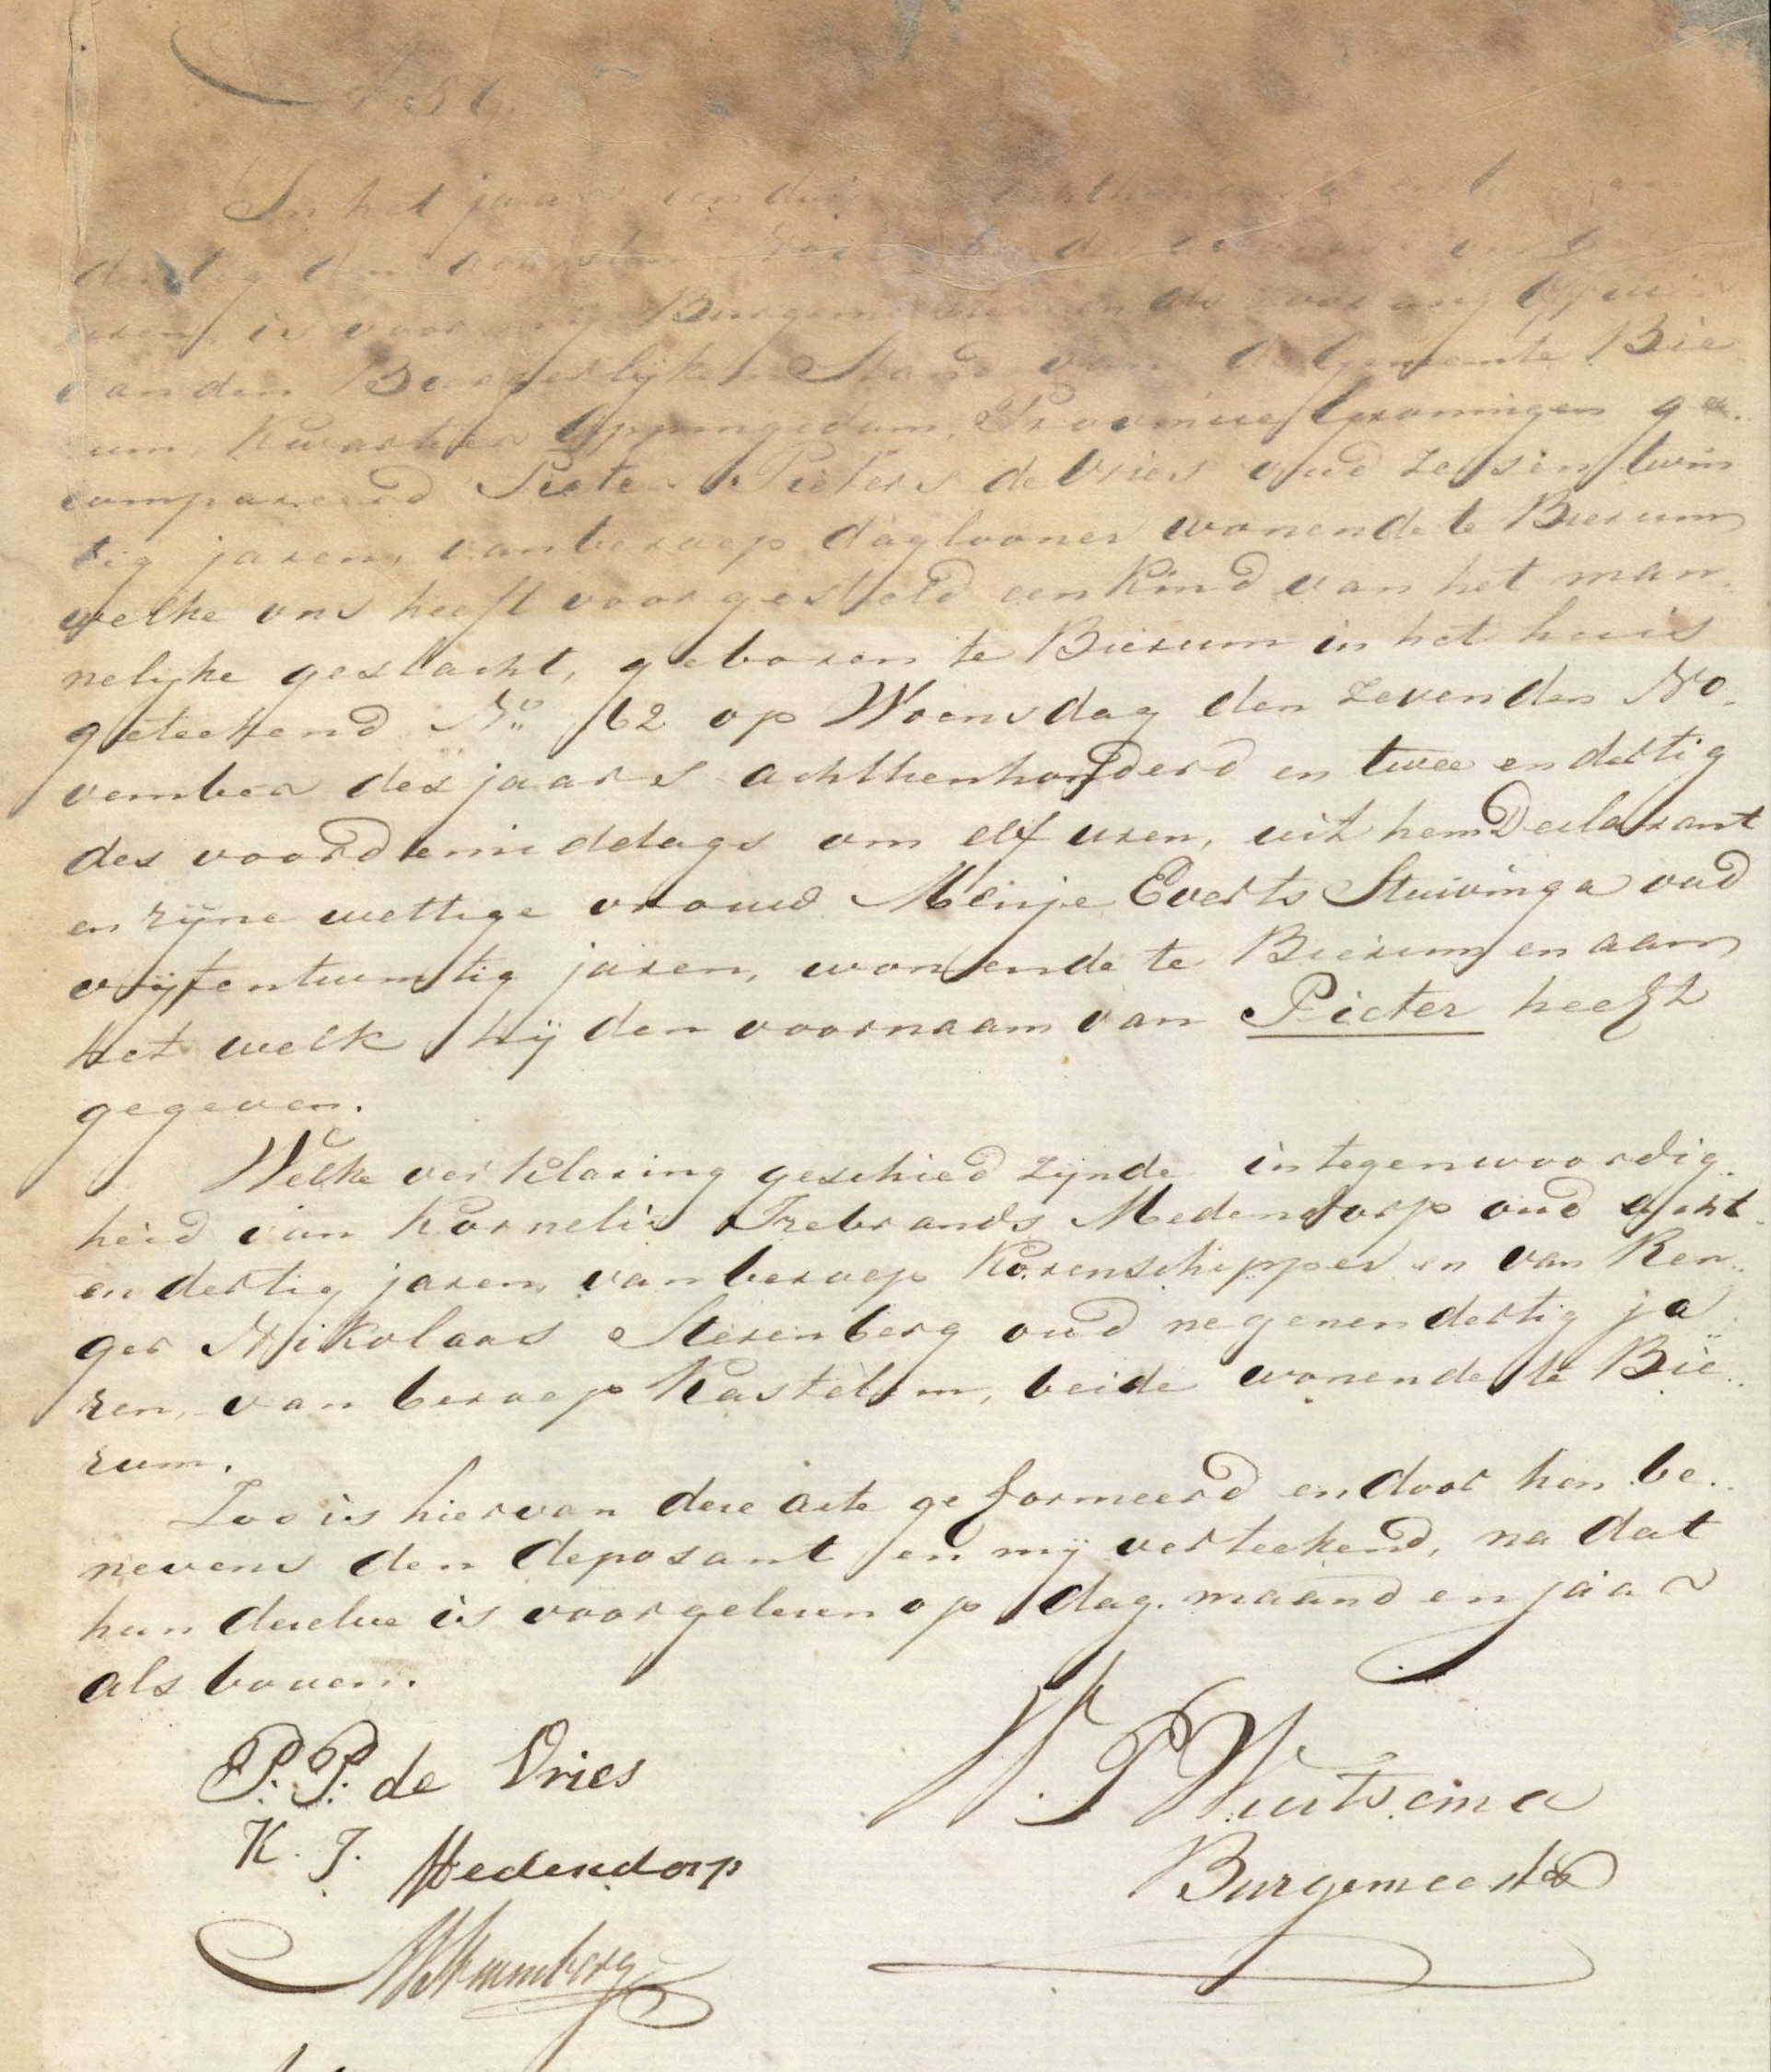 In het jaar een
den
uren, is voor mij Burgemeester en als zoodanig Officier
van den Burgerlijken Stand van de Gemeente Bie
rum, Kwartier Appingedam, Provincie Groningen ge..
compareerd Pieter Pieters de Vries oud zes en twin
tig jaren, van beroep daglooner wonende te Bierum
welke ons heeft voorgesteld een Kind van het man.
nelijke geslacht, geboren te Bierum in het huis
geteekend No. 62 op Woensdag den zevenden No.
vember des jaars achttienhonderd en twee en dertig
des voordemiddags om elf uren, uit hem Declarant
en zijne wettige vrouw Menje Everts Stuivinga oud
vijfentwintig jaren, wonende te Bierum en aan
het welk hij den voornaam van Pieter heeft
gegeven.
Welke verklaring geschied zijnde in tegenwoordig..
heid van Kornelis Izebrands Medendorp oud acht..
en dertig jaren, van beroep Korenschipper en van Ren..
ger Nikolaas Sterenberg oud negenendertig ja
ren, van beroep Kastelein, beide wonende te Bie..
rum.
Zoo is hiervan deze acte geformeerd en door hen be..
nevens den deposant en mij verteekend, na dat
hun dezelve is voorgelezen op dag, maand en jaar
als boven.
P. P. de Vries
K. I. Medendorp
Burgemeester